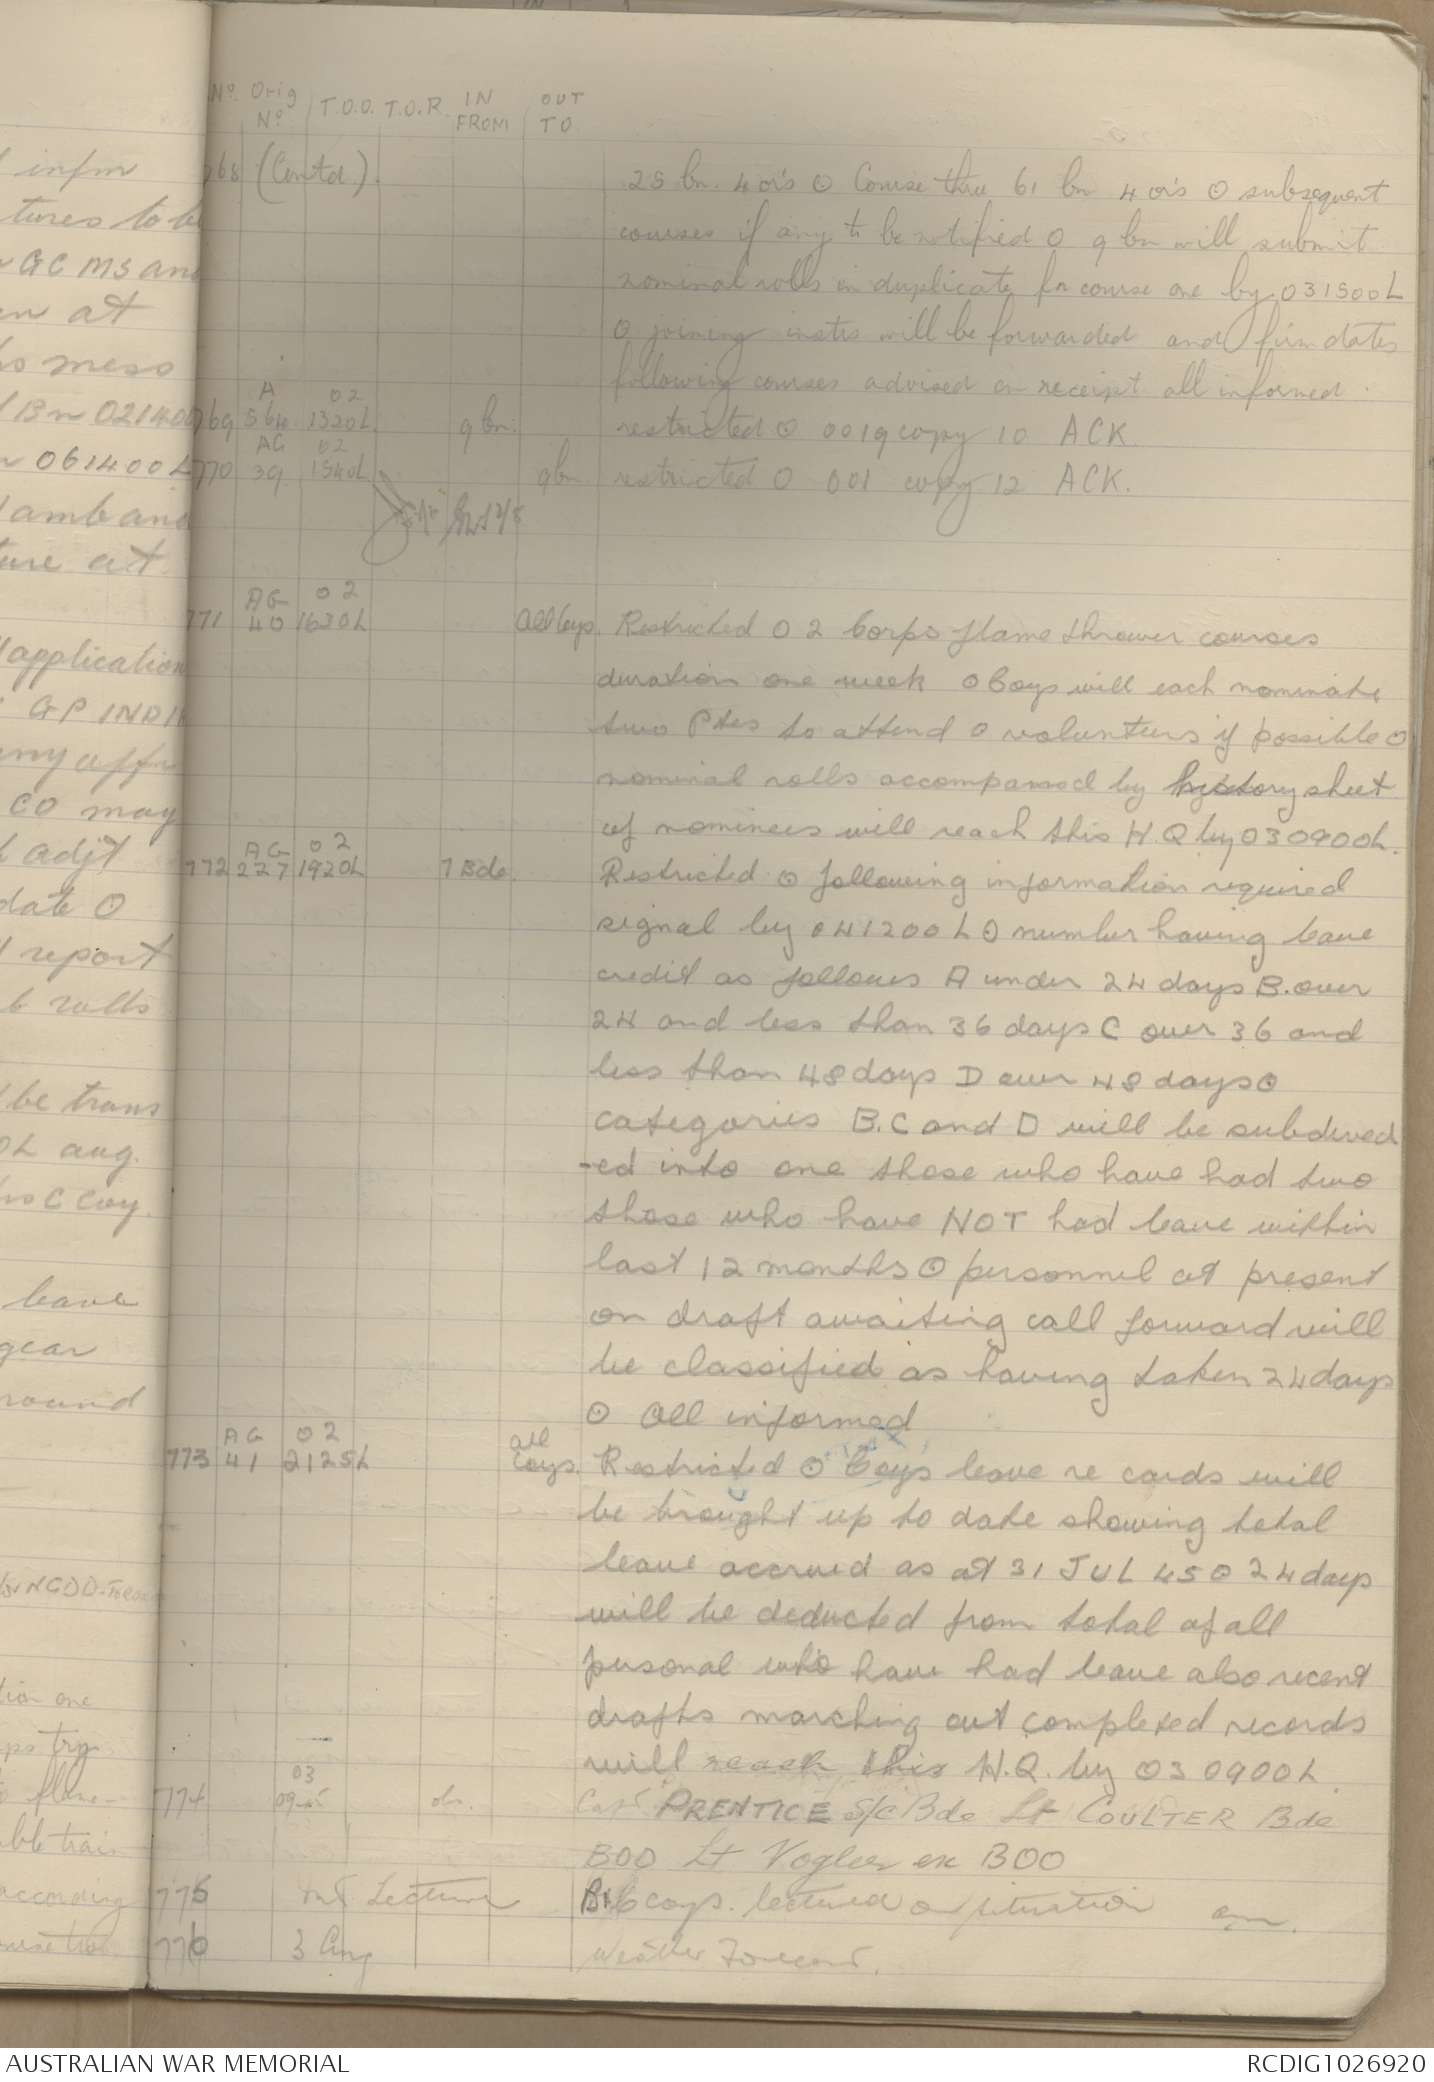 infm
tures to be
GCMS and
en at
mess
Bn 021400
061400L
amb and
ture at
application
GP INDI
any affn
CO may
adjt
date O
report
rolls
be trans
aug.
C Coy.
leave
gear
round
tion one
according
No. Orig No. T.O.O. T.O.R. IN FROM OUT TO
768 (Contd.) 25 bn. 4 or's O Course three 61 bn 4 or's O subsequent
courses if any to be notified O 9 bn will submit
nominal rolls in duplicate for course one by 031500L
O joining instns will be forwarded and firm dates
following courses advised on receipt all informed.
769 A 564 02 1320L 9 bn. restricted O 0019 copy 10 ACK
770 AG 39 02 1540L 9bn restricted O 001 copy 12 ACK.
771 AG 40 02 1630L All Coys. Restricted O 2 Corps flame thrower courses
duration one week O Coys will each nominate
two Ptes to attend O volunteers if possible O
nominal rolls accompanied by history sheet
of nominees will reach this H.Q by 030900L.
772 AG 227 02 1920L 7 Bde. Restricted O following information required
signal by 041200L O number having leave
credit as follows A under 24 days B. over
24 and less than 36 days C over 36 and
less than 48 days D over 48 days O
categories B.C and D will be subdived
-ed into one those who have had two
those who have NOT had leave within
last 12 months O personnel at present
on draft awaiting call forward will
be classified as having taken 24 days
O All informed
773 AG 41 02 2125L all Coys. Restricted O Coys leave re cards will
be brought up to date showing total
leave accrued as at 31 JUL 45 O 24 days
will be deducted from total of all
personal who have had leave also recent
drafts marching out completed records
will reach this H.Q. by 030900L.
774 03 Capt PRENTICE S/C Bde Lt COULTER Bde
BOO Lt Vogler ex BOO
775 Int Lecture coys. lectured on situation
776 3 Aug Weather Forecast.
AUSTRALIAN WAR MEMORIAL
RCDIG1026920